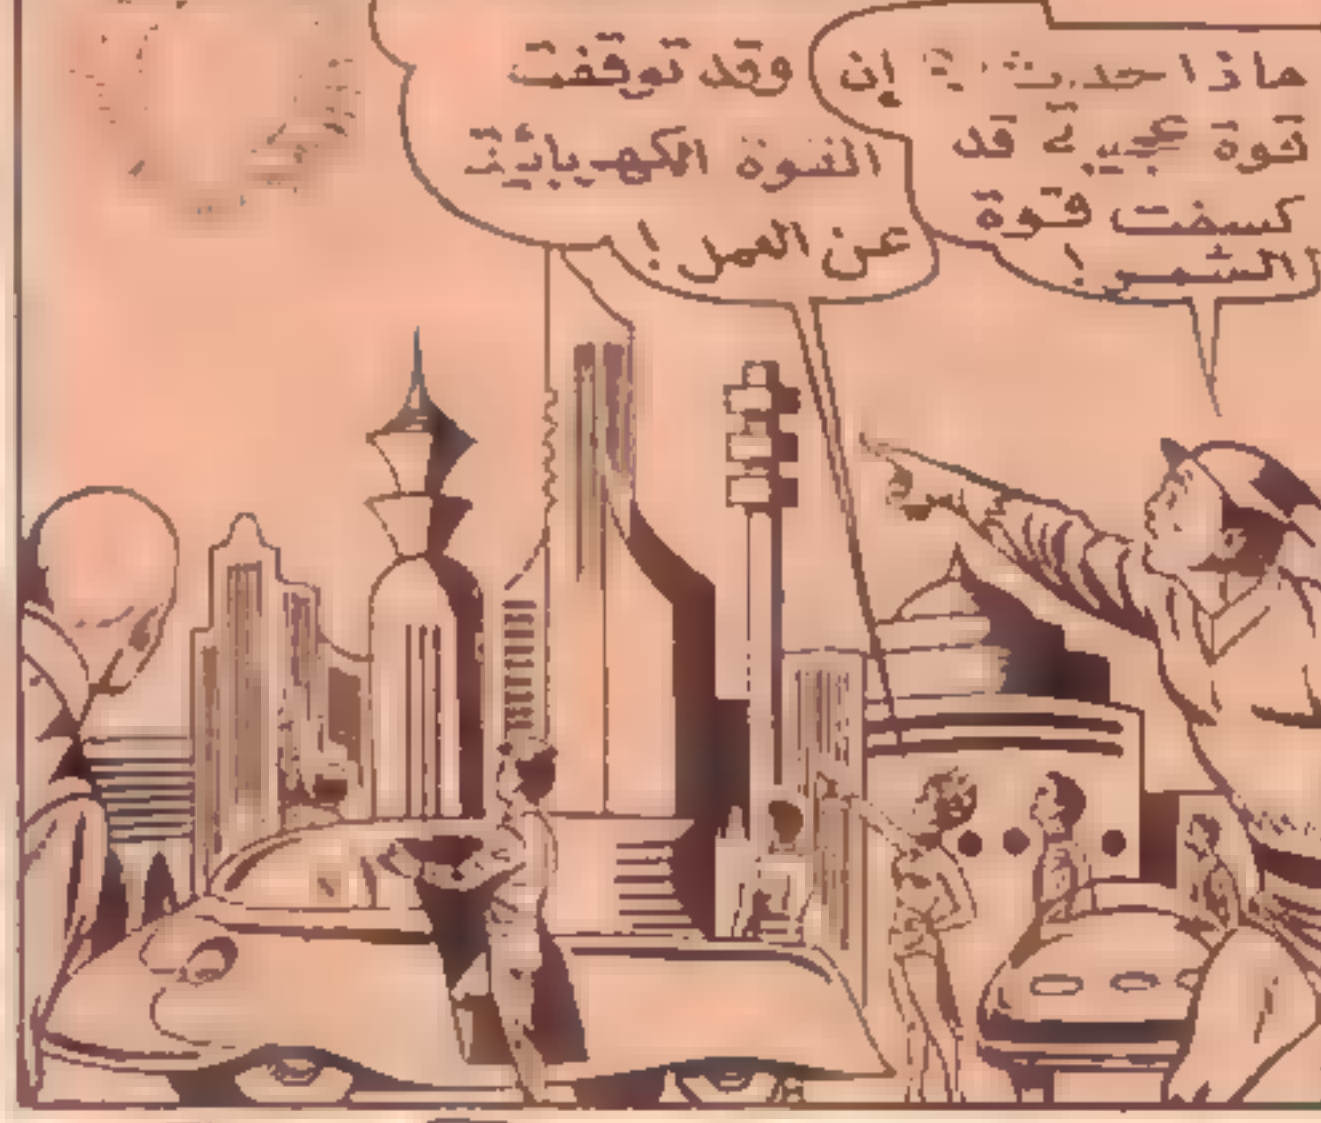 ماذا حدث؟ إن
قوة عجيبة قد
كسفت قوة
الشمس!
وقد توقفت
القوة الكهربائية
عن العمل!